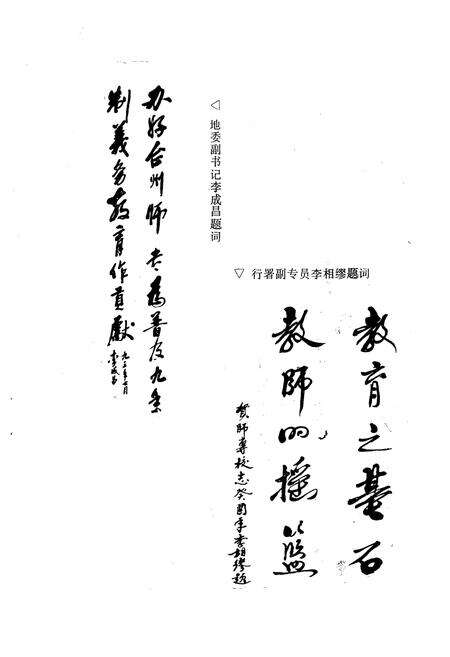 ◁ 地委副书记李成昌题词
办好台州师专为普及九年
制义务教育作贡献
九三年七月
李成昌
▽ 行署副专员李相缪题词
教育之基石
教師的摇籃
贺師專校志癸酉年李相缪题